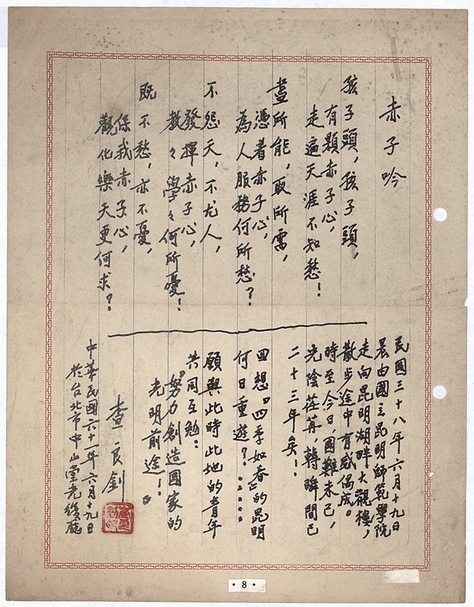 赤子吟
孩子頭,孩子頭,
有顆赤子心,
走遍天涯不知愁!
盡所能,取所需,
憑着赤子心,
為人服務何所愁?
不怨天,不尤人,
發揮赤子心,
教々學々何所憂!
既不愁,亦不憂,
保我赤子心,
觀化樂天更何求?
民國三十八年六月十九日
晨由國立昆明師範學院
走向昆明湖畔大觀樓,
散步途中有感偶成。
時至今日,國難未已,
光陰荏苒,轉瞬間已
二十三年矣!
回想「四季如春」的昆明
何日重遊?……
願與此時此地的青年
共同互勉:
努力創造國家的
光明前途!
查良釗
中華民國六十一年六月十九日
於台北市中山堂光復廳
·8·